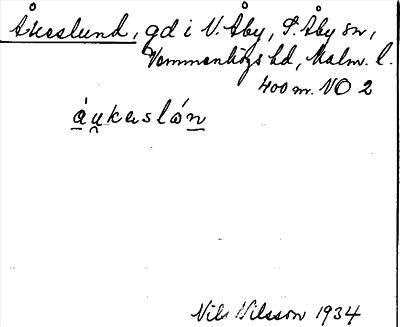 Åkeslund, gd i V. Åby, S. Åby sn,
Vemmenhögs hd, Malm. l.
400 m. NO 2
áu̯kaslón
Nils Nilsson 1934